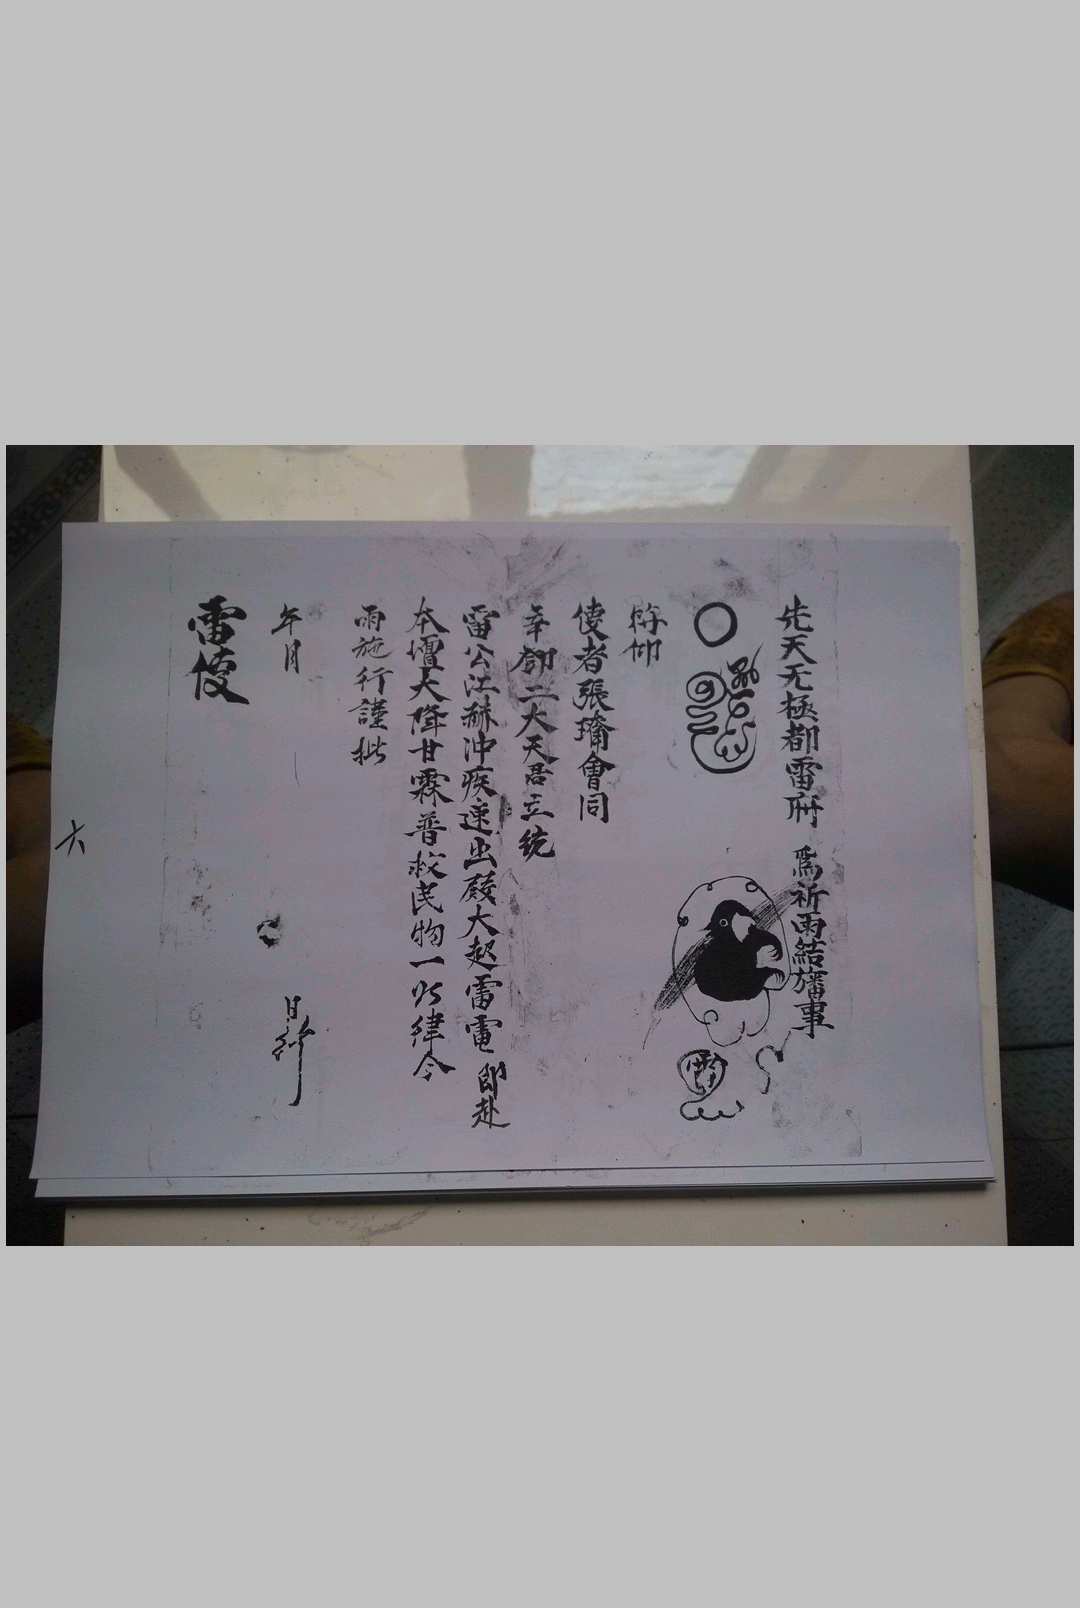 先天无極都雷府 為祈雨結旛事
仰
使者張　會同
辛鄧二大天君立統
雷公江赫冲疾速出殿大起雷電 即赴
本壇大降甘霖普救民物一如律令
雨施行謹批
年月 日
雷使
六